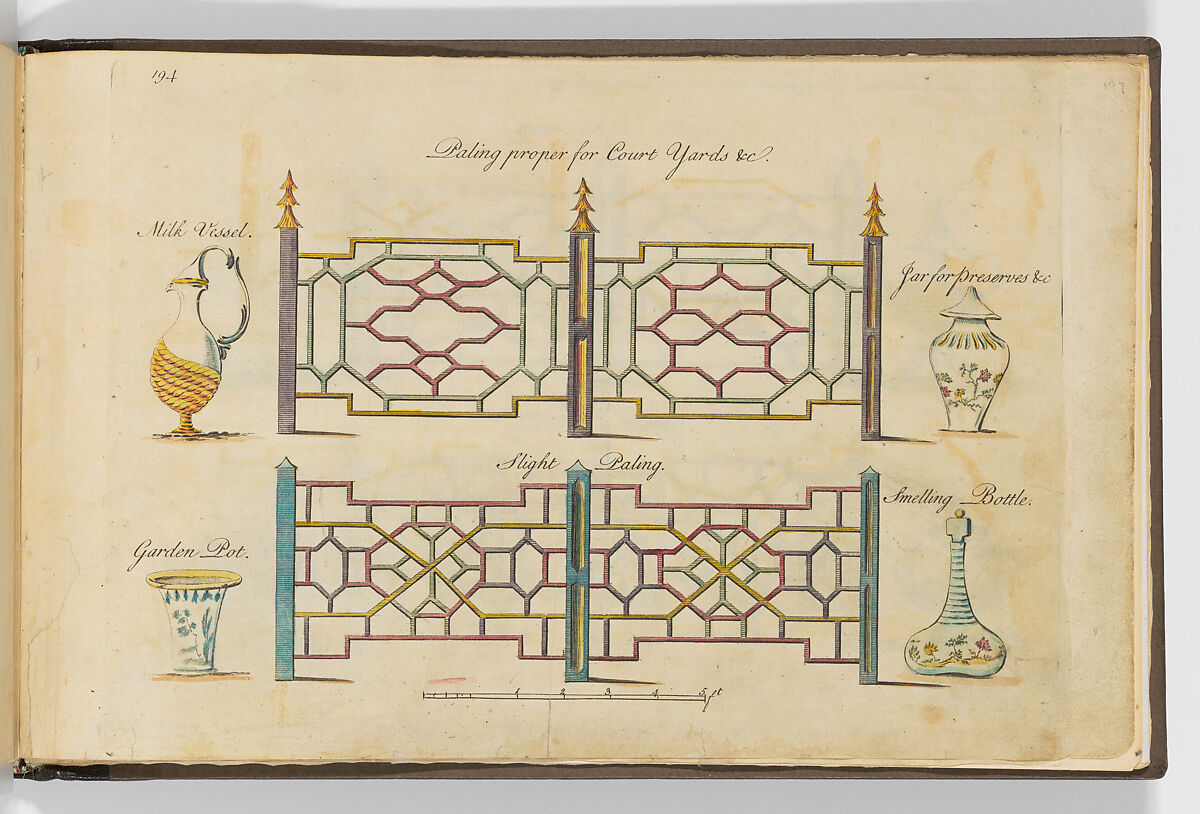 194
Paling proper for Court Yards &c.
Milk Vessel.
Jar for preserves &c
Slight Paling.
Smelling Bottle.
Garden Pot.
1 2 3 4 5 ft